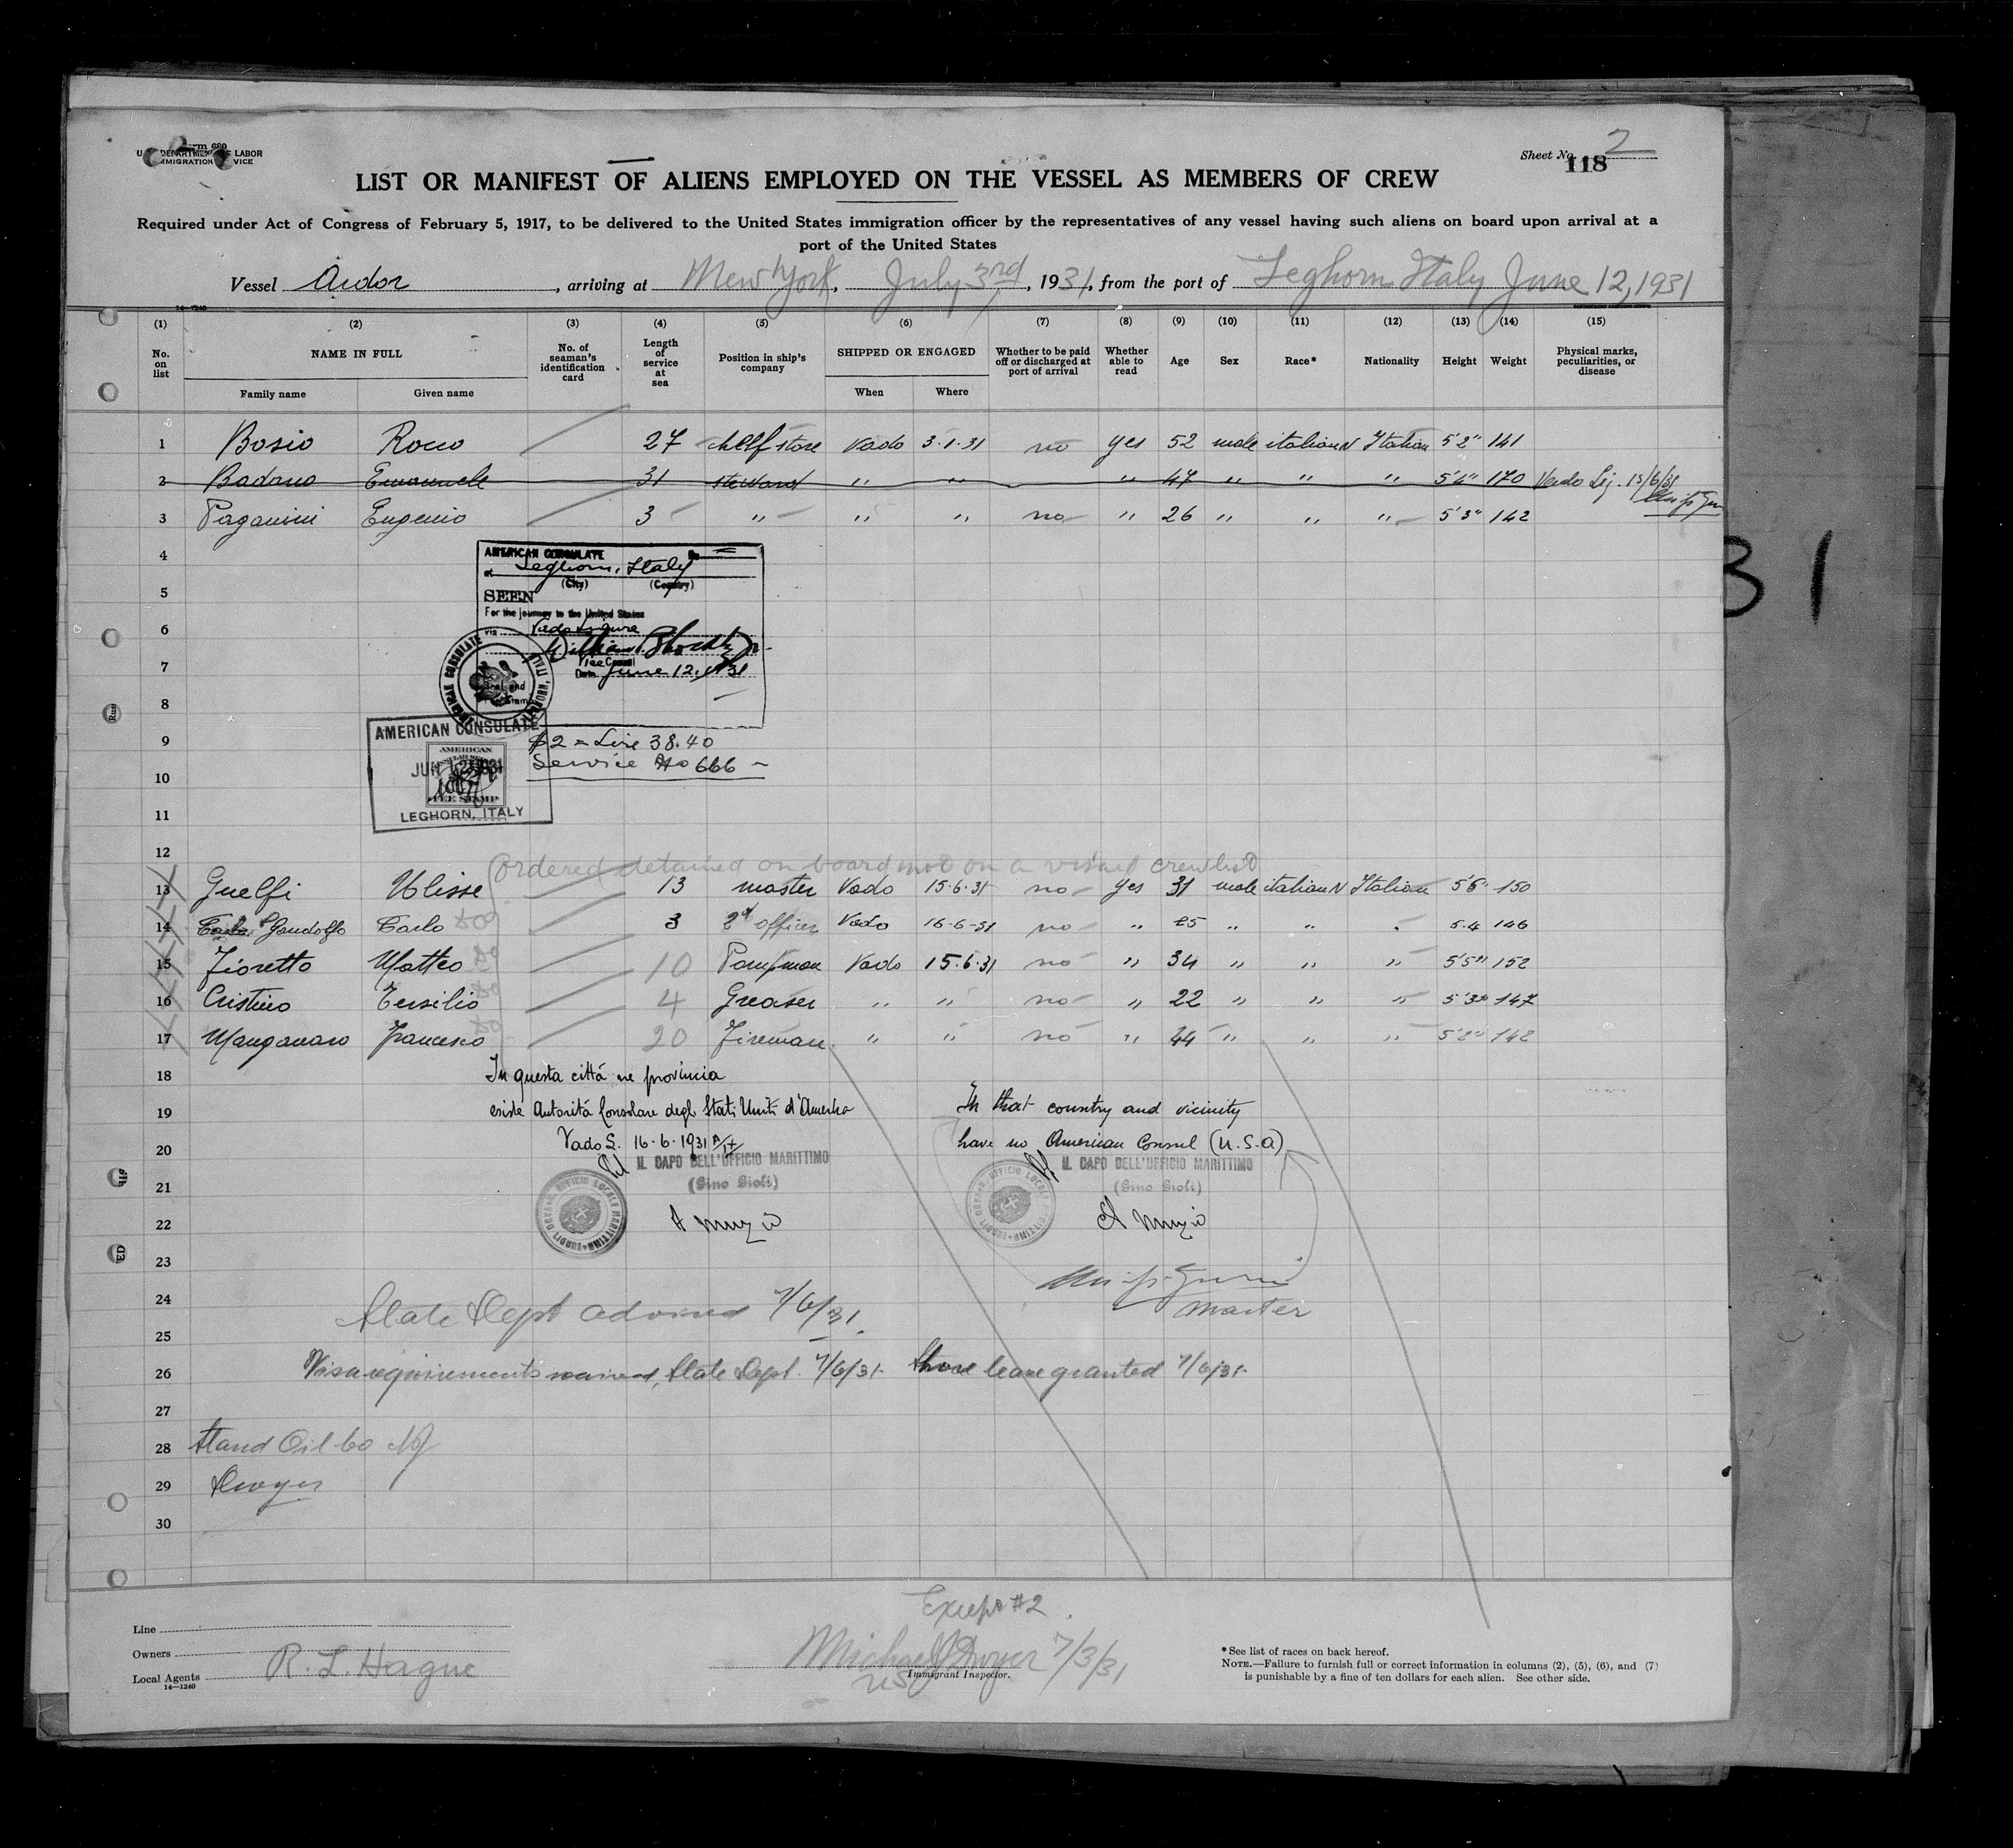 Form 680
U. S. DEPARTMENT OF LABOR
IMMIGRATION SERVICE
Sheet No. 2
118
LIST OR MANIFEST OF ALIENS EMPLOYED ON THE VESSEL AS MEMBERS OF CREW
Required under Act of Congress of February 5, 1917, to be delivered to the United States immigration officer by the representatives of any vessel having such aliens on board upon arrival at a
port of the United States
Vessel Ardor, arriving at New York, July 3rd, 1931, from the port of Leghorn Italy June 12, 1931
14—1240
(1) (2) (3) (4) (5) (6) (7) (8) (9) (10) (11) (12) (13) (14) (15)
No. on list NAME IN FULL No. of seaman's identification card Length of service at sea Position in ship's company SHIPPED OR ENGAGED Whether to be paid off or discharged at port of arrival Whether able to read Age Sex Race* Nationality Height Weight Physical marks, peculiarities, or disease
Family name Given name When Where
1 Bosio Rocco 27 store Vado 3-1-31 no yes 52 male italian N Italian 5'2" 141
2 Badano Emanuele 31 steward " " " 47 " " " 5'4" 170 Vado Lig. 15/6/31
3 Paganini Eugenio 3 " " " no " 26 " " " 5'3" 142
4
AMERICAN CONSULATE
at Leghorn, Italy
(City) (Country)
5
SEEN
For the journey to the United States
6
via Vado Ligure
7
Vice Consul
Date June 12, 1931
AMERICAN CONSULATE LEGHORN, ITALY
8
AMERICAN CONSULATE
9
$2 = Lire 38.40
AMERICAN
JUN 12 1931
Service No 666
10
FEE STAMP
11
LEGHORN, ITALY
12
Ordered detained on board not on a visaed crew list
13 Guelfi Ulisse 13 master Vado 15-6-31 no yes 31 male italian N Italian 5'6" 150
14 Gandolfo Carlo do 3 2d officer Vado 16-6-31 no " 25 " " " 5.4 146
15 Fioretto Matteo do 10 Pompman Vado 15.6.31 no " 34 " " " 5'5" 152
16 Cristino Tersilio do 4 Greaser " " no " 22 " " " 5'3" 147
17 Manganaro Francesco do 20 Fireman " " no " 44 " " " 5'2" 142
18 In questa città ne provincia
19 esiste Autorità Consolare degli Stati Uniti d'America
In that country and vicinity
20 Vado L. 16-6-1931
have no American Consul (U.S.A)
IL CAPO DELL'UFFICIO MARITTIMO
(Gino Gioli)
IL CAPO DELL'UFFICIO MARITTIMO
(Gino Gioli)
21
22 A Muzio
A Muzio
23
24 State Dept advised 7/6/31.
Master
25
26 Visa requirements waived, State Dept. 7/6/31. Shore leave granted 7/6/31.
27
28 Stand Oil Co NJ
29 Dwyer
30
31
Except #2
Line
Owners
Local Agents R. L. Hague
14—1240
Michael J Dwyer 7/3/31
Immigrant Inspector.
*See list of races on back hereof.
NOTE.—Failure to furnish full or correct information in columns (2), (5), (6), and (7)
is punishable by a fine of ten dollars for each alien. See other side.